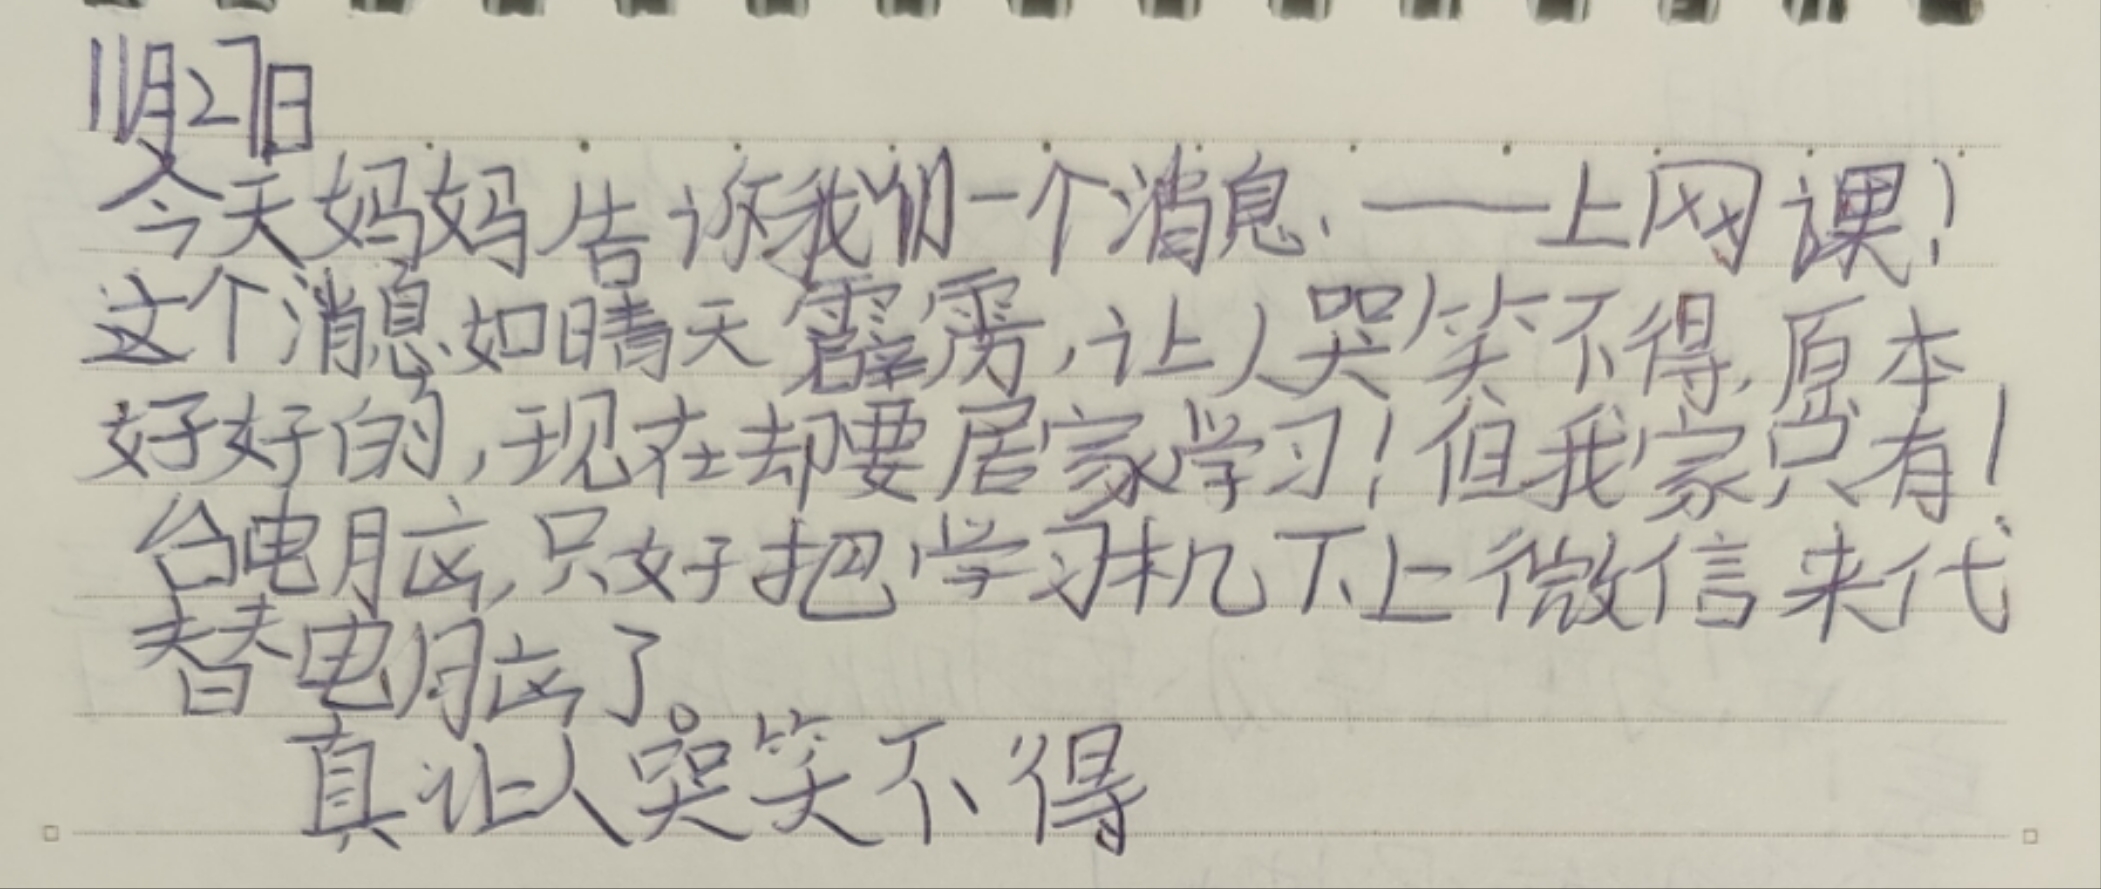 11月27日
今天妈妈告诉我们一个消息.——上网课!
这个消息如晴天霹雳,让人哭笑不得,原本
好好的,现在却要居家学习!但我家只有1
台电脑,只好把学习机下上微信来代
替电脑了。
真让人哭笑不得